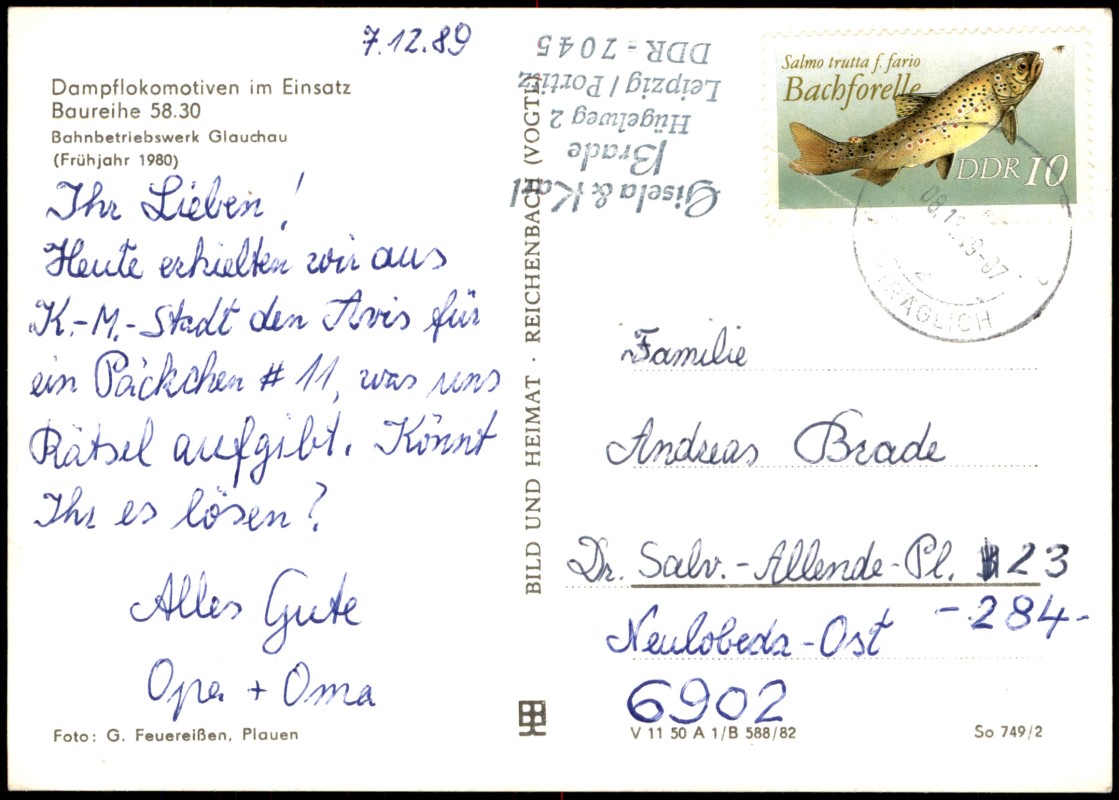 7.12.89
Dampflokomotiven im Einsatz
Baureihe 58.30
Bahnbetriebswerk Glauchau
(Frühjahr 1980)
Ihr Lieben!
Heute erhielten wir aus
K.-M.-Stadt den Avis für
ein Päckchen # 11, was uns
Rätsel aufgibt. Könnt
Ihr es lösen?
Alles Gute
Opa + Oma
Foto: G. Feuereißen, Plauen
BILD UND HEIMAT · REICHENBACH (VOGTL
Gisela & Karl
Brade
Hügelweg 2
Leipzig / Portitz
DDR - 7045
Salmo trutta f. fario
Bachforelle
DDR 10
Familie
Andreas Brade
Dr. Salv.-Allende-Pl. 23
-284-
Neulobeda-Ost
6902
V 11 50 A 1/B 588/82
So 749/2